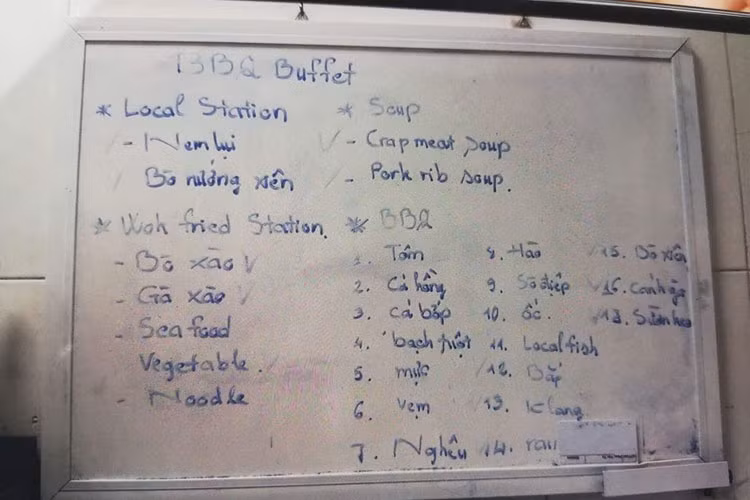 BBQ Buffet
* Local Station
- Nem lụi
Bò nướng xiên
* Woh fried Station.
- Bò xào V
- Gà xào V
- Seafood
Vegetable.
- Noodle
* Soup
V - Crap meat soup
- Pork rib soup.
* BBQ
1. Tôm
2. Cá hồng
3. cá bớp
4. bạch tuột
5. mực
6. Vẹm
7. Nghêu
8. Hào
9. Sò điệp
10. ốc.
11. Local fish
12. Bắp
13. K lang
14. rau
15. Bò xiên
16. Cánh gà
Sườn heo